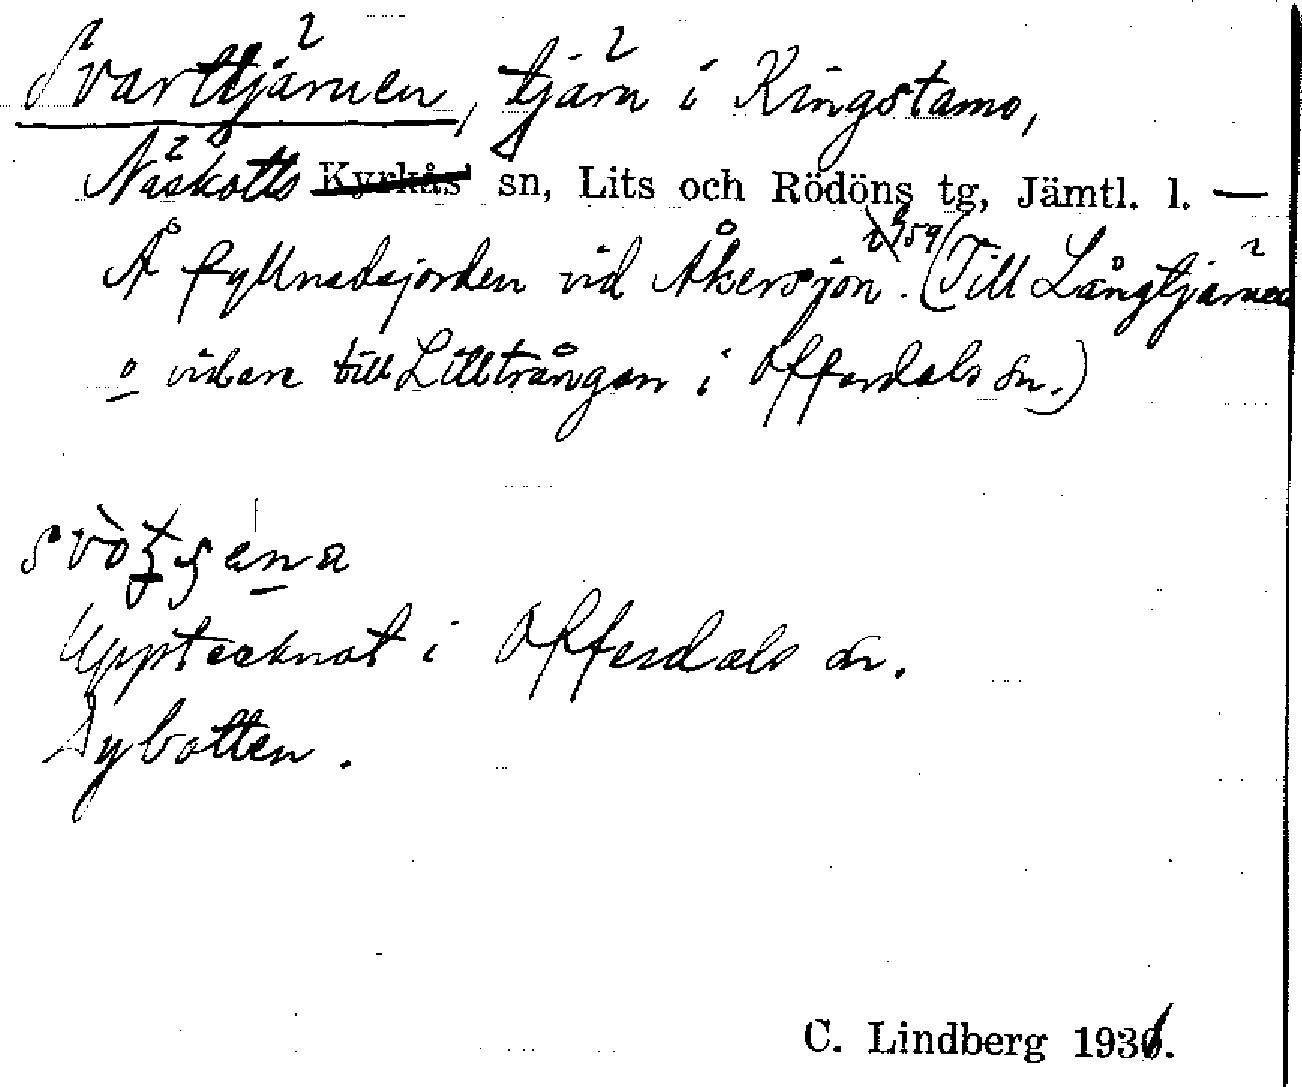 Svarttjärnen, tjärn i Kingstamo,
Näskotts Kyrkås sn, Lits och Rödöns tg, Jämtl. l. —
Å fyllnadsjorden vid Åkersjön. (Till Långtjärnen
o vidare till Lilltrången i Offerdals sn.)
Upptecknat i Offerdals sn.
Dybotten.
C. Lindberg 1936.